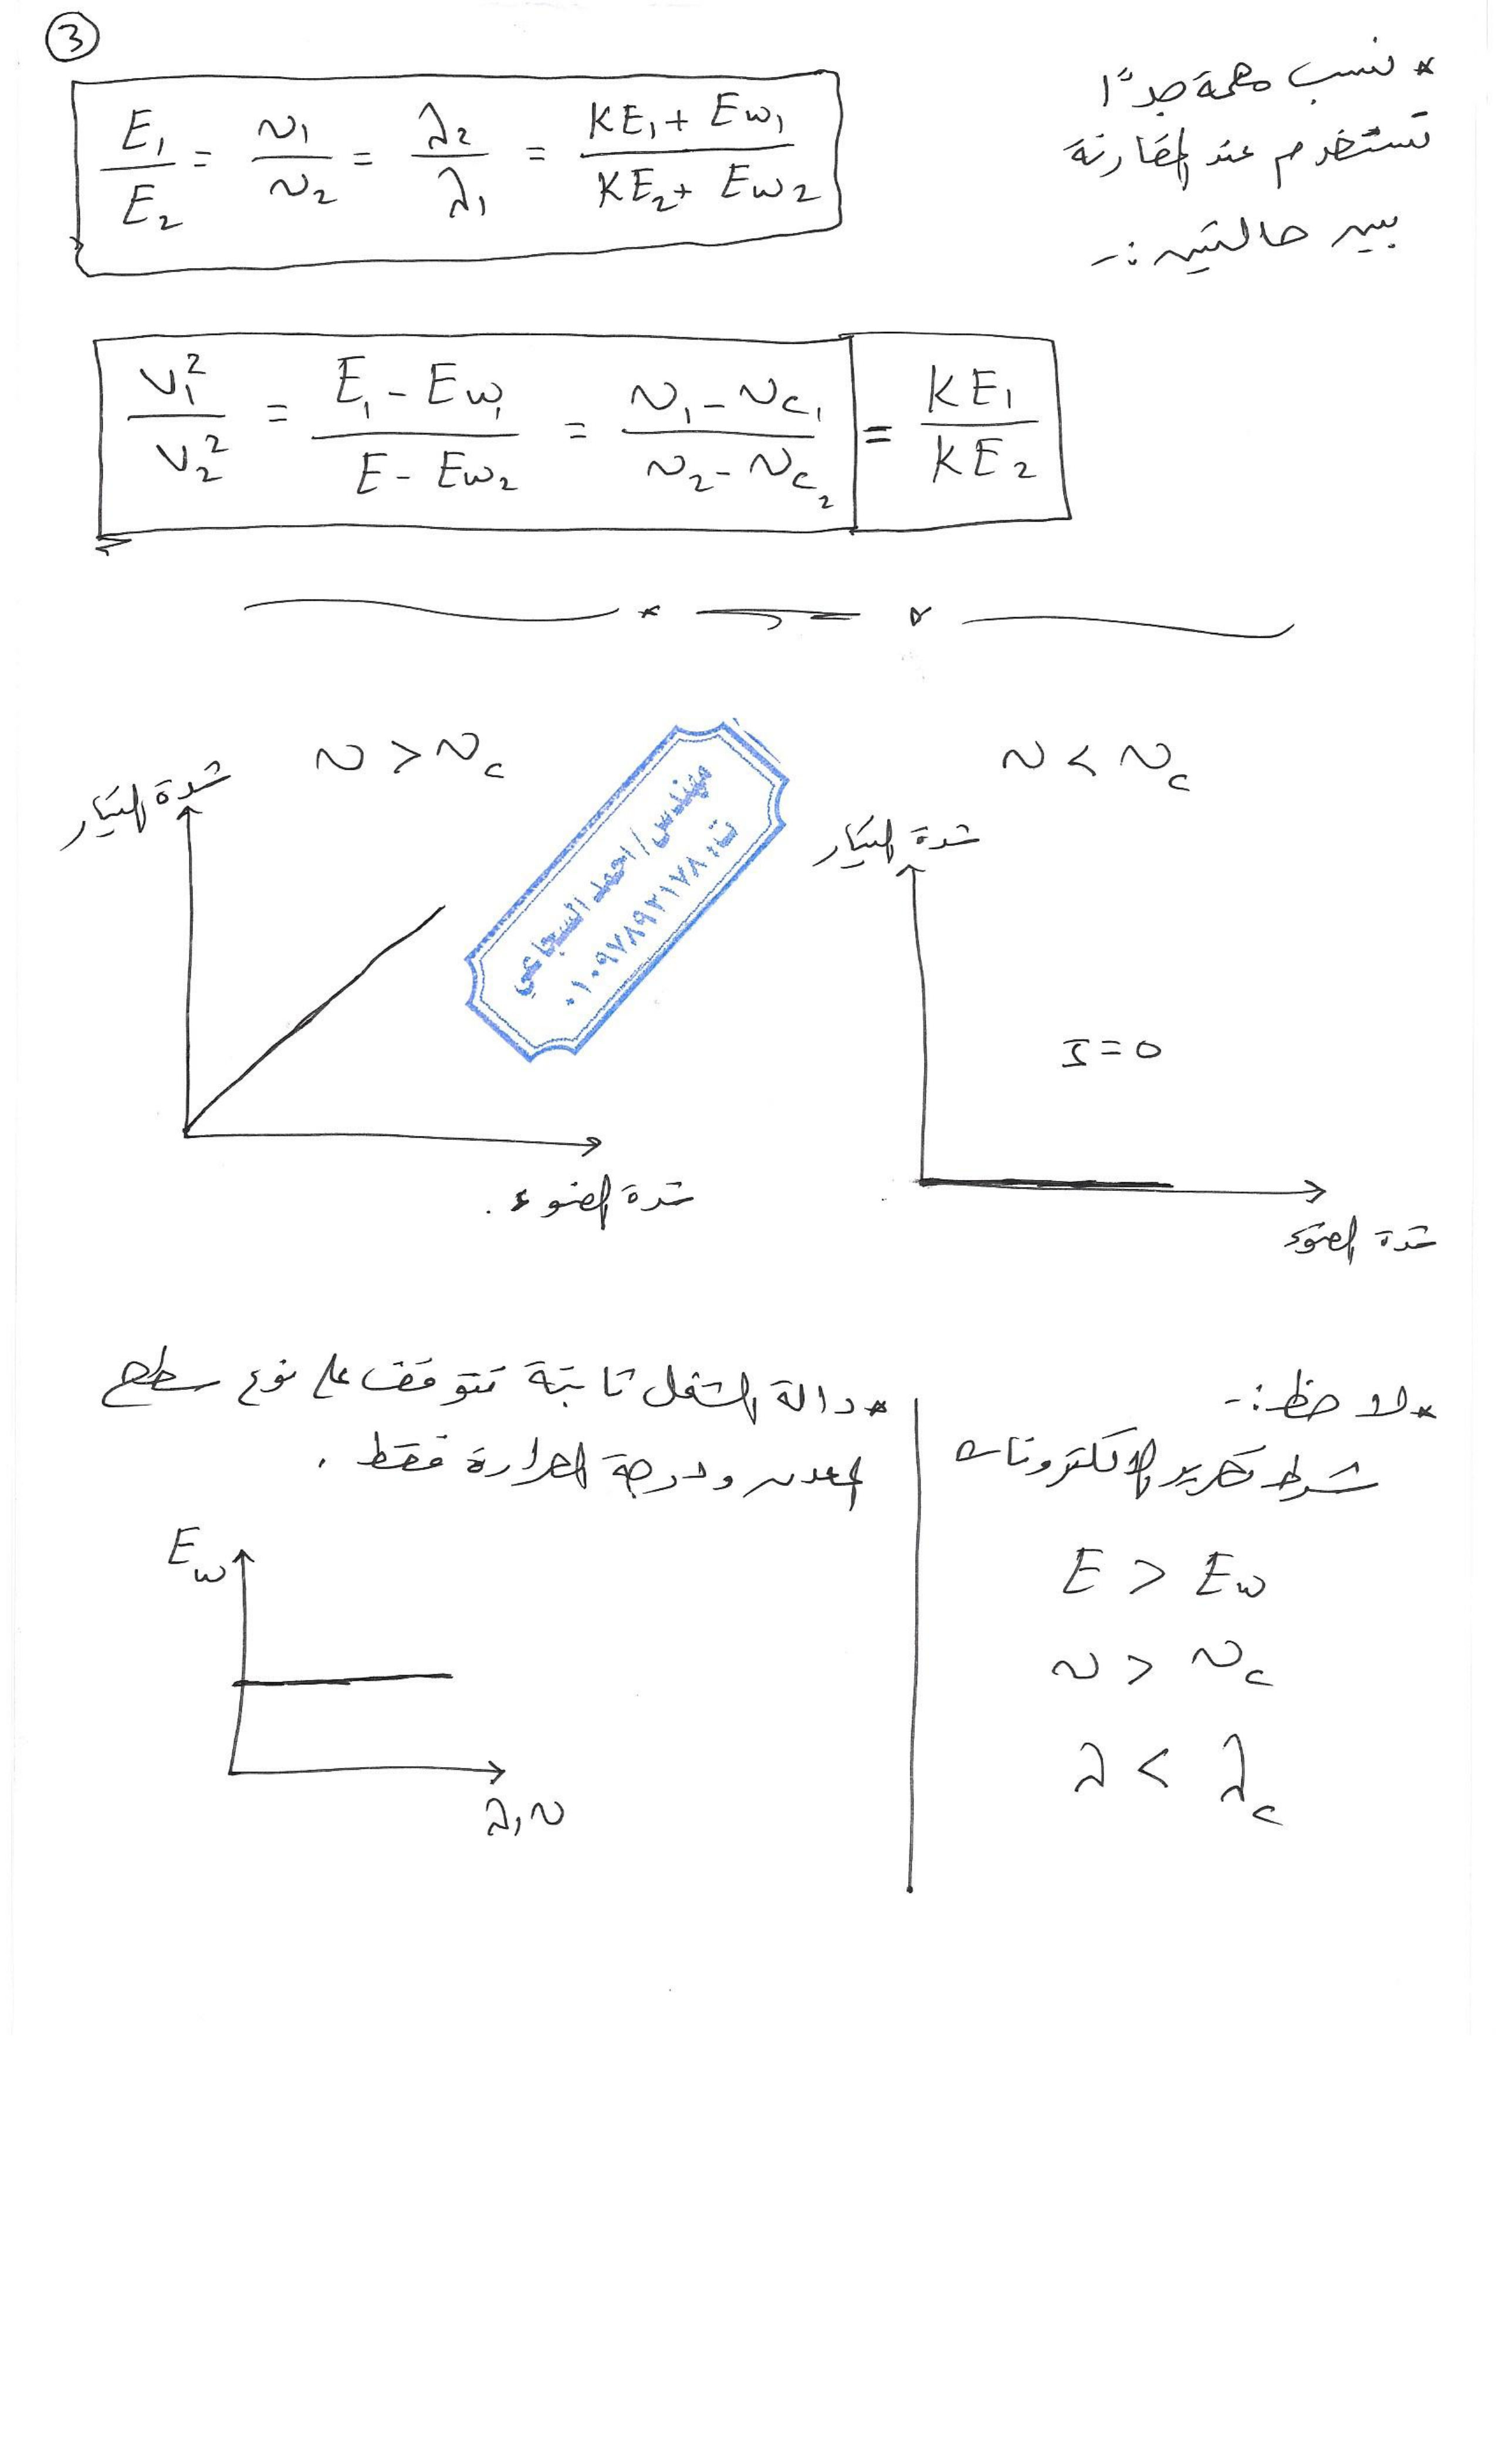 3
* نسب مهمة جدًا
تستخدم عند المقارنة
بين حالتين :-
E₁/E₂ = ν₁/ν₂ = λ₂/λ₁ = (KE₁ + Ew₁)/(KE₂ + Ew₂)
v₁²/v₂² = (E₁ - Ew₁)/(E - Ew₂) = (ν₁ - νc₁)/(ν₂ - νc₂) = KE₁/KE₂
ν < νc
شدة التيار
I = 0
شدة الضوء
ν > νc
شدة التيار
شدة الضوء .
مهندس/ احمد السجاعي
ت: ٠١٠٩٧٨٩٢١٧٨
* لاحظ :-
شرط تحرير الالكترونات
E > Ew
ν > νc
λ < λc
* دالة الشغل ثابتة تتوقف على نوع سطح
المعدن ودرجة الحرارة فقط .
Ew
λ, ν